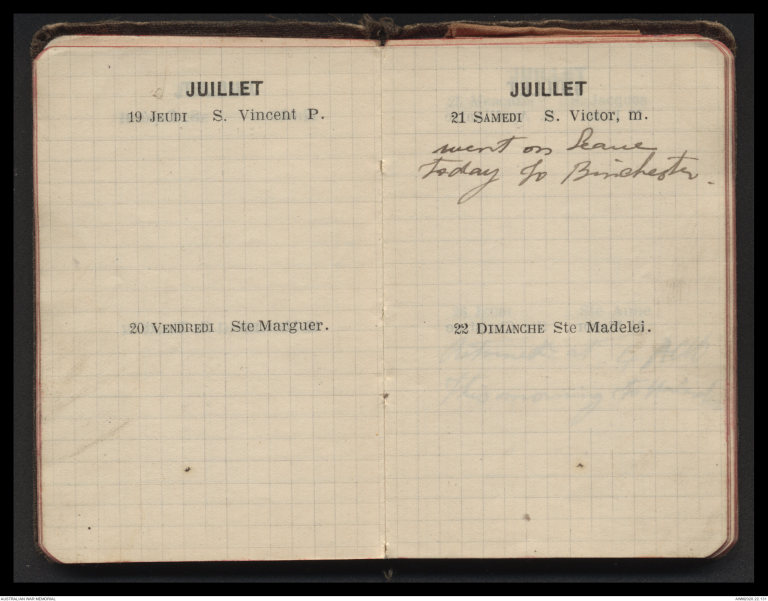 JUILLET
19 JEUDI S. Vincent P.
20 VENDREDI Ste Marguer.
JUILLET
21 SAMEDI S. Victor, m.
went on leave
today to Binchester.
22 DIMANCHE Ste Madelei.
at
This morning
AUSTRALIAN WAR MEMORIAL